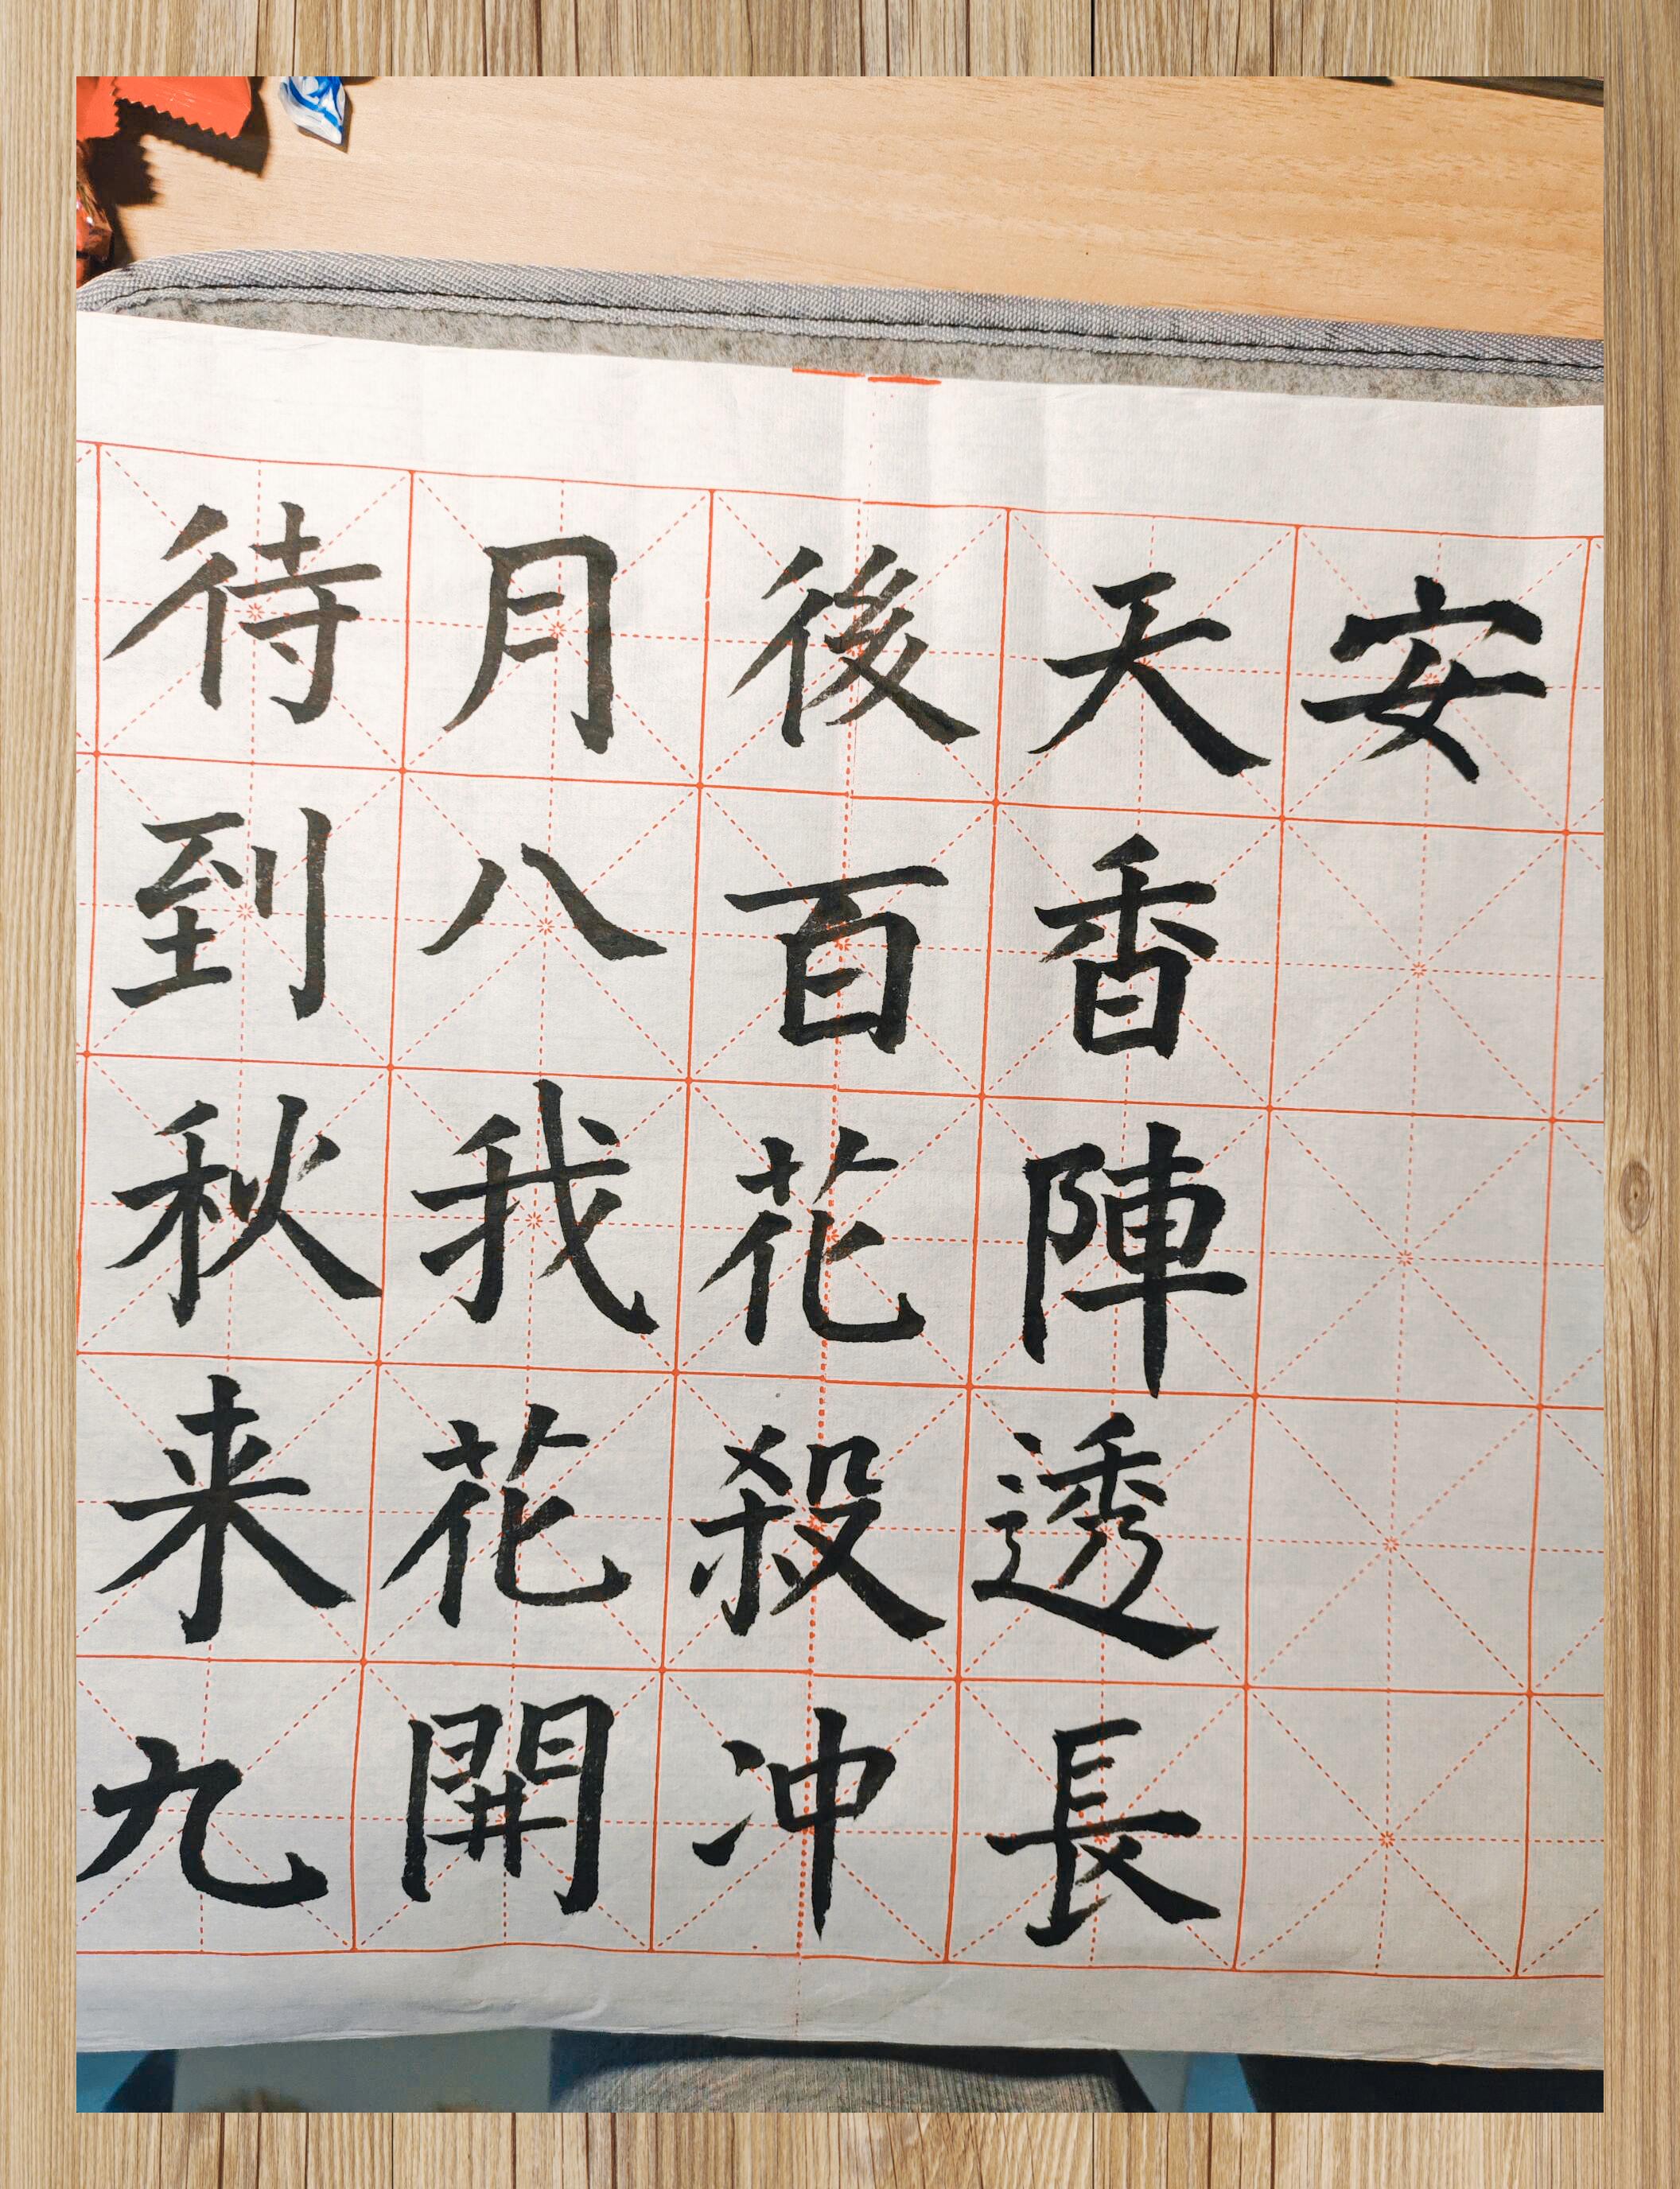 待到秋来九
月八我花開
後百花殺冲
天香陣透長
安